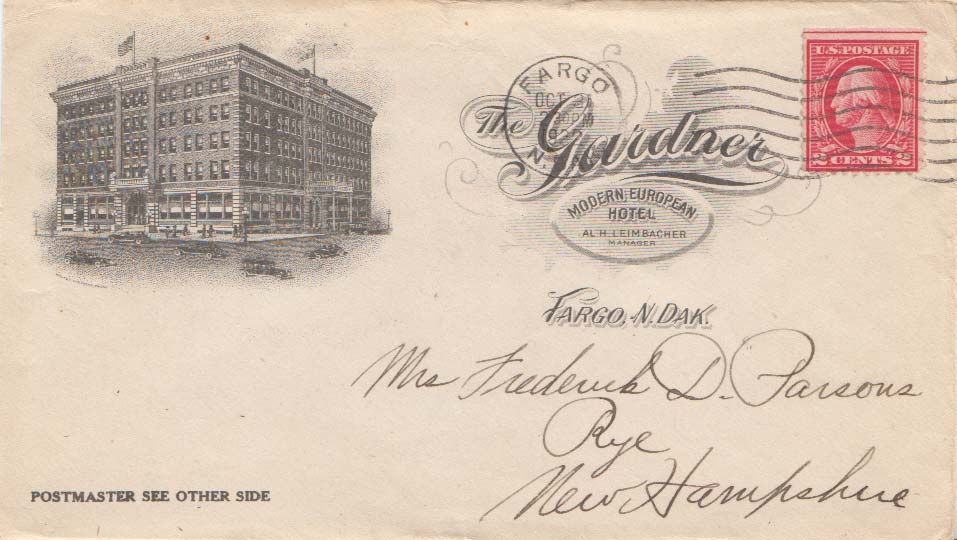 The Gardner
MODERN EUROPEAN
HOTEL
AL H. LEIMBACHER
MANAGER
FARGO, N. DAK.
FARGO
OCT
N.
U.S. POSTAGE
2 CENTS 2
Mrs Frederick D. Parsons
Rye
New Hampshire
POSTMASTER SEE OTHER SIDE